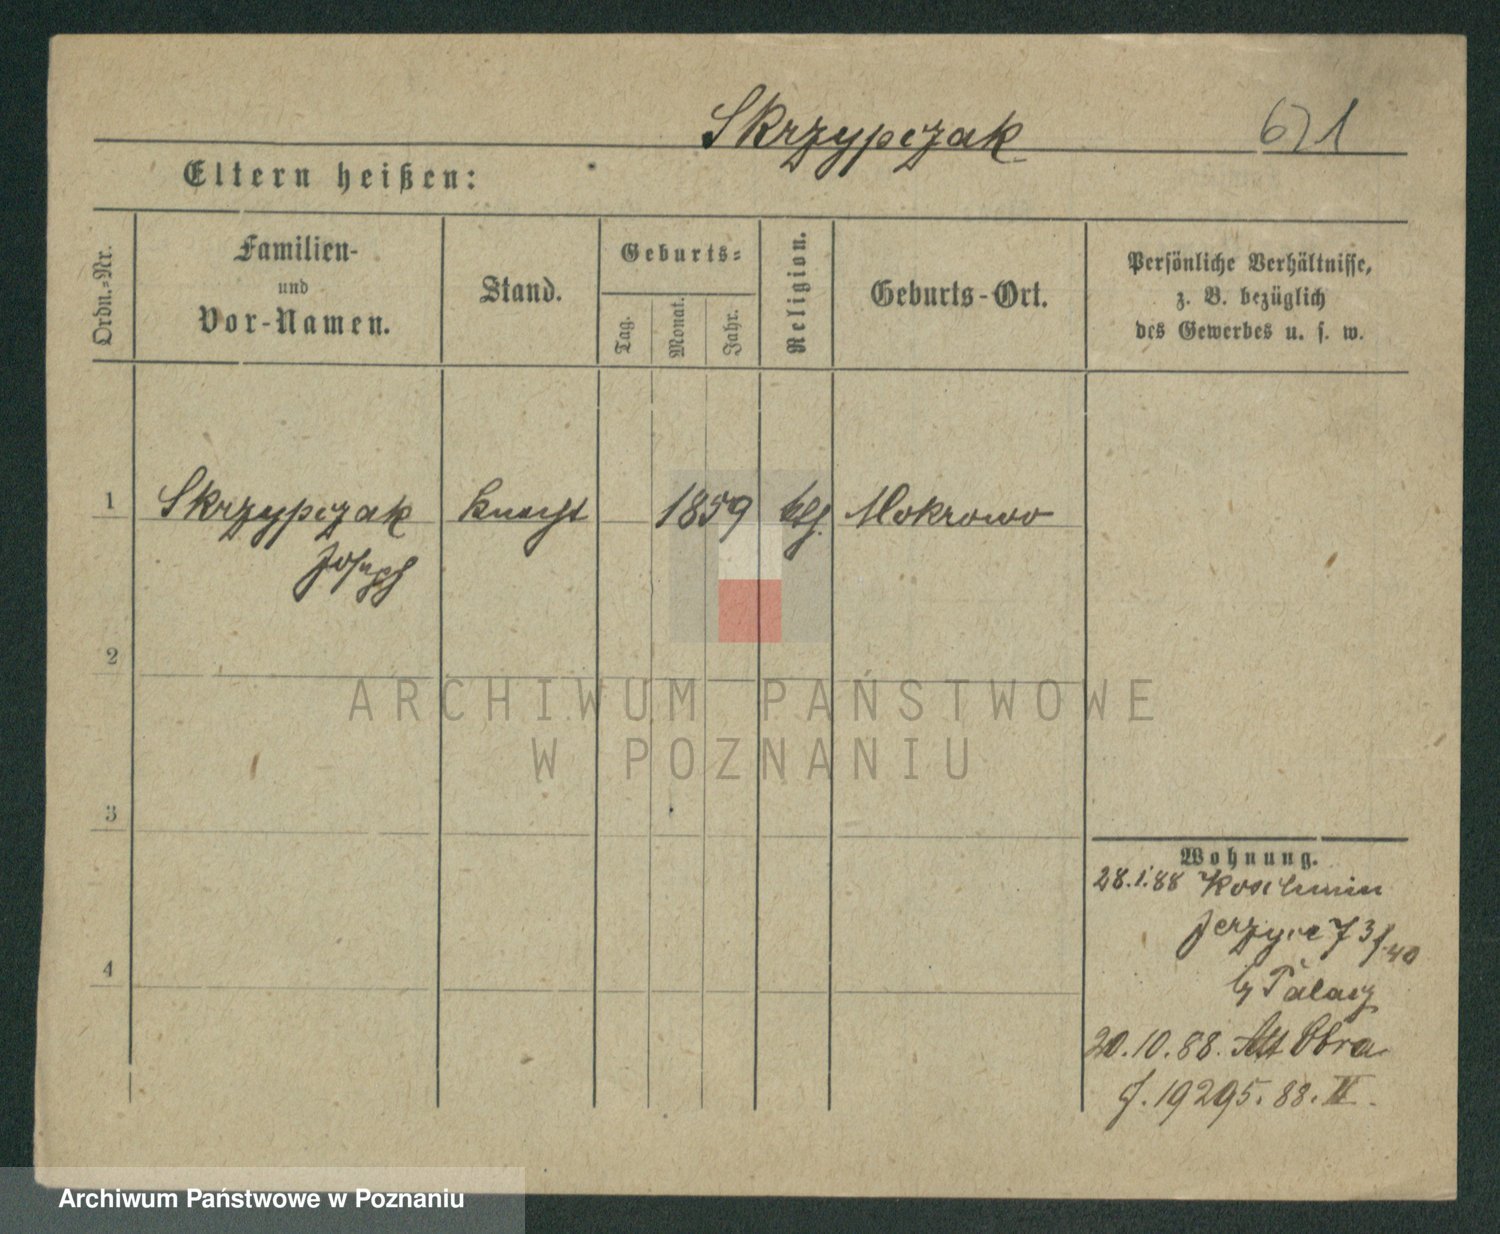 Skrzypczak 671
Eltern heißen:
Ordn.-Nr.
Familien-
und
Vor-Namen.
Stand.
Geburts-
Tag.
Monat.
Jahr.
Religion.
Geburts-Ort.
Persönliche Verhältnisse,
z. B. bezüglich
des Gewerbes u. s. w.
1 Skrzypczak Knecht 1859 kth. Mokrowo
Joseph
2
3
4
Wohnung.
28.1.88 Koschmin
Jerzyce 73
b/ Palacz
20.10.88. Alt Obra
J. 19295. 88. II.
ARCHIWUM PAŃSTWOWE
W POZNANIU
Archiwum Państwowe w Poznaniu